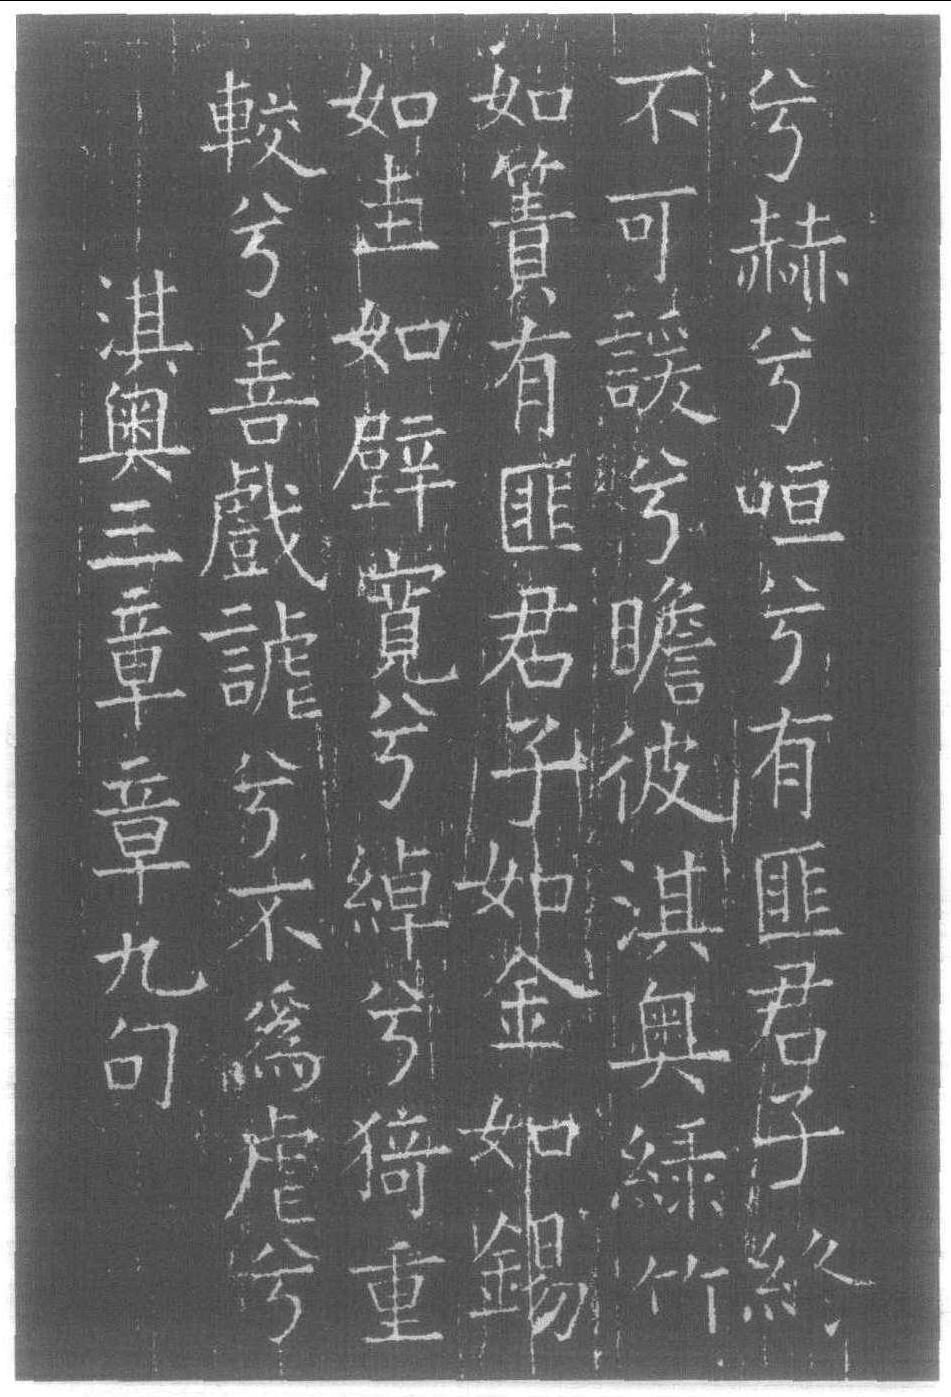 兮赫兮咺兮有匪君子終
不可諼兮瞻彼淇奧綠竹
如簀有匪君子如金如錫
如圭如璧寬兮綽兮猗重
較兮善戲謔兮不為虐兮
淇奧三章章九句